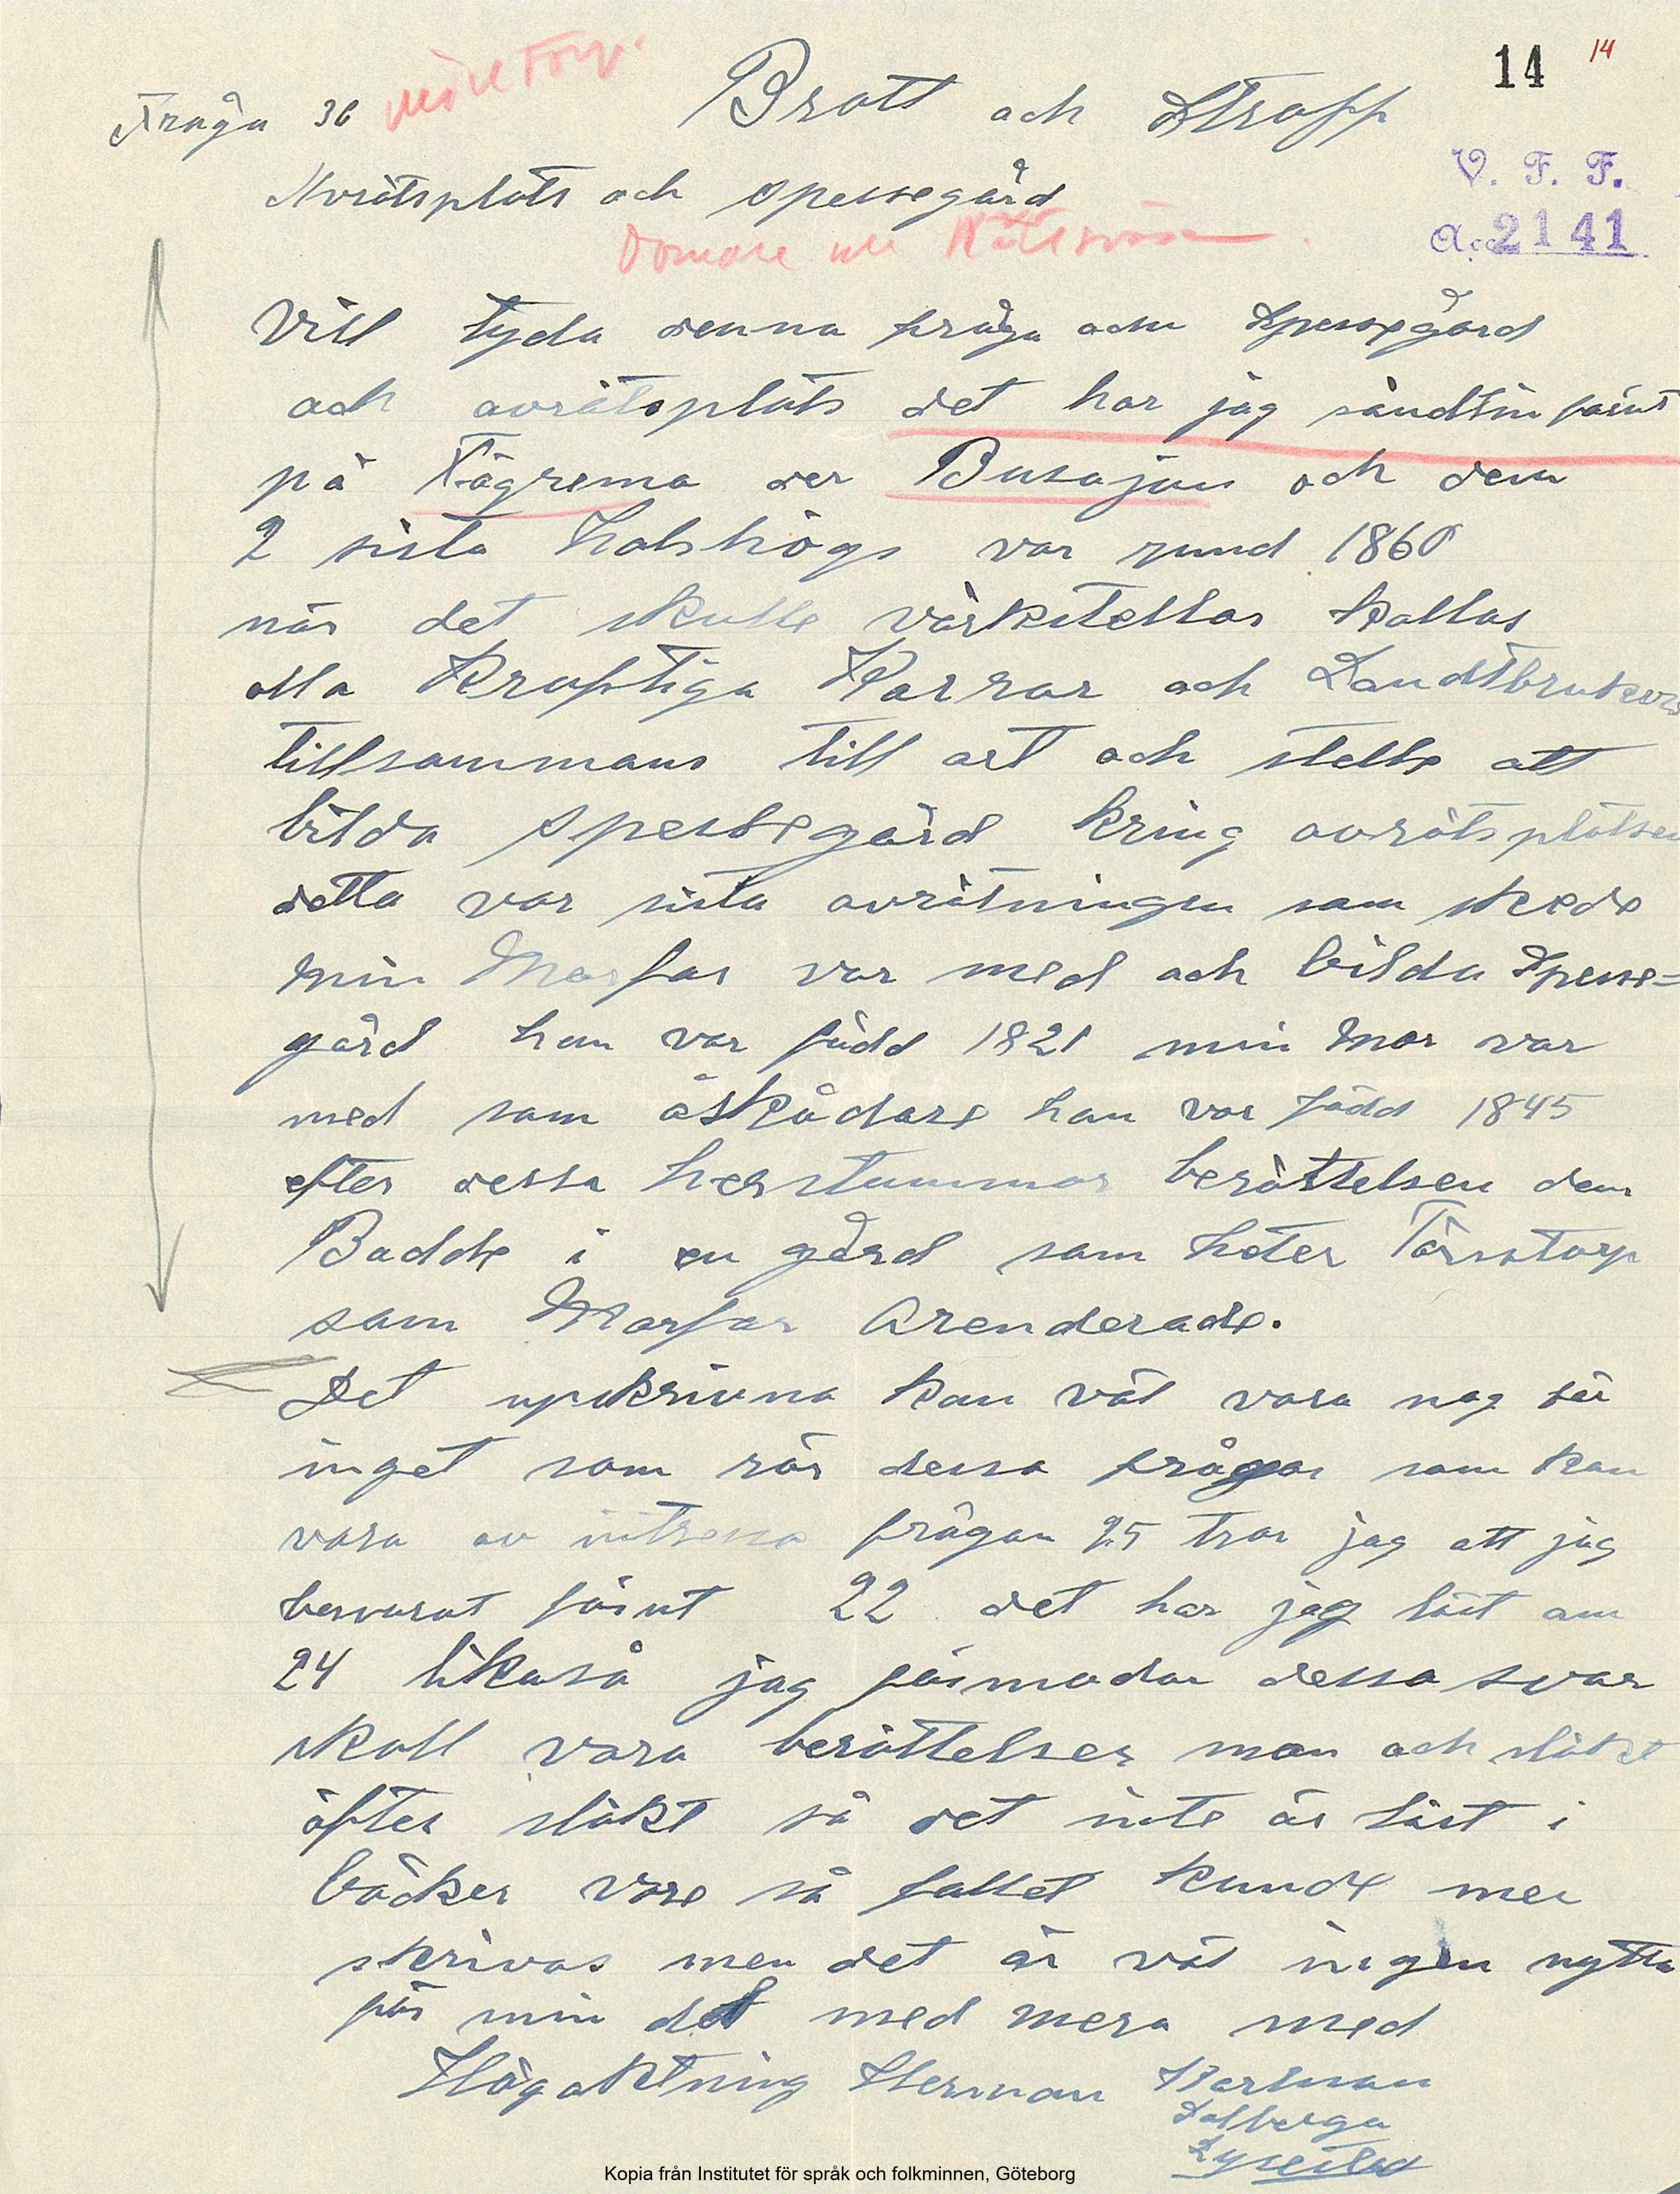 14 14
Fråga 36 Brott och Straff
V. F. F.
Avrätsplats och spessegård
Acc. 2141
Domare och Rättsväsen
Vill tyda denna fråga och Spessegård
och avrätsplats det har jag sändt in förut
på Fägrema der Busajan och dem
2 sista halshögs var rund 1860
när det skulle värkstellas kallas
alla kraftiga Karrar och Landtbrukare
tillsammans till ort och stelle att
bilda spessegård kring avrätsplatsen
detta var sista avrätningen som skede
min Morfar var med och bilda Spesse=
gård han var född 1821 min Mor var
med som åskådare han var född 1845
efter dessa herstammar berättelsen dem
Bodde i en gård som heter Tårsstorp
som Morfar Arenderade.
Det upskrivna kan väl vara nog där
inget som rör dessa frågor som kan
vara av intresse frågan 25 tror jag att jag
besvarat förut 22 det har jag läst om
24 likaså jag förmodar dessa svar
skall vara berättelser man och släkt
äfter släkt så det inte är läst i
böcker vore så fallet kunde mer
skrivas men det är väl ingen nytta
för min del med mera med
Högaktning Herman Karlman
Dalberga
Lysestad
Kopia från Institutet för språk och folkminnen, Göteborg